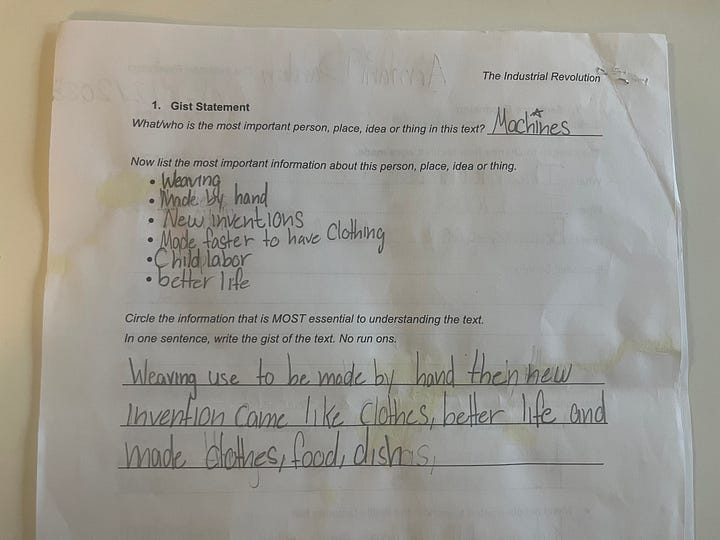 The Industrial Revolution
1. Gist Statement
What/who is the most important person, place, idea or thing in this text? Machines
Now list the most important information about this person, place, idea or thing.
• Weaving
• Made by hand
• New inventions
• Made faster to have Clothing
• Child labor
• better life
Circle the information that is MOST essential to understanding the text.
In one sentence, write the gist of the text. No run ons.
Weaving use to be made by hand then new
invention came like clothes, better life and
made clothes, food,